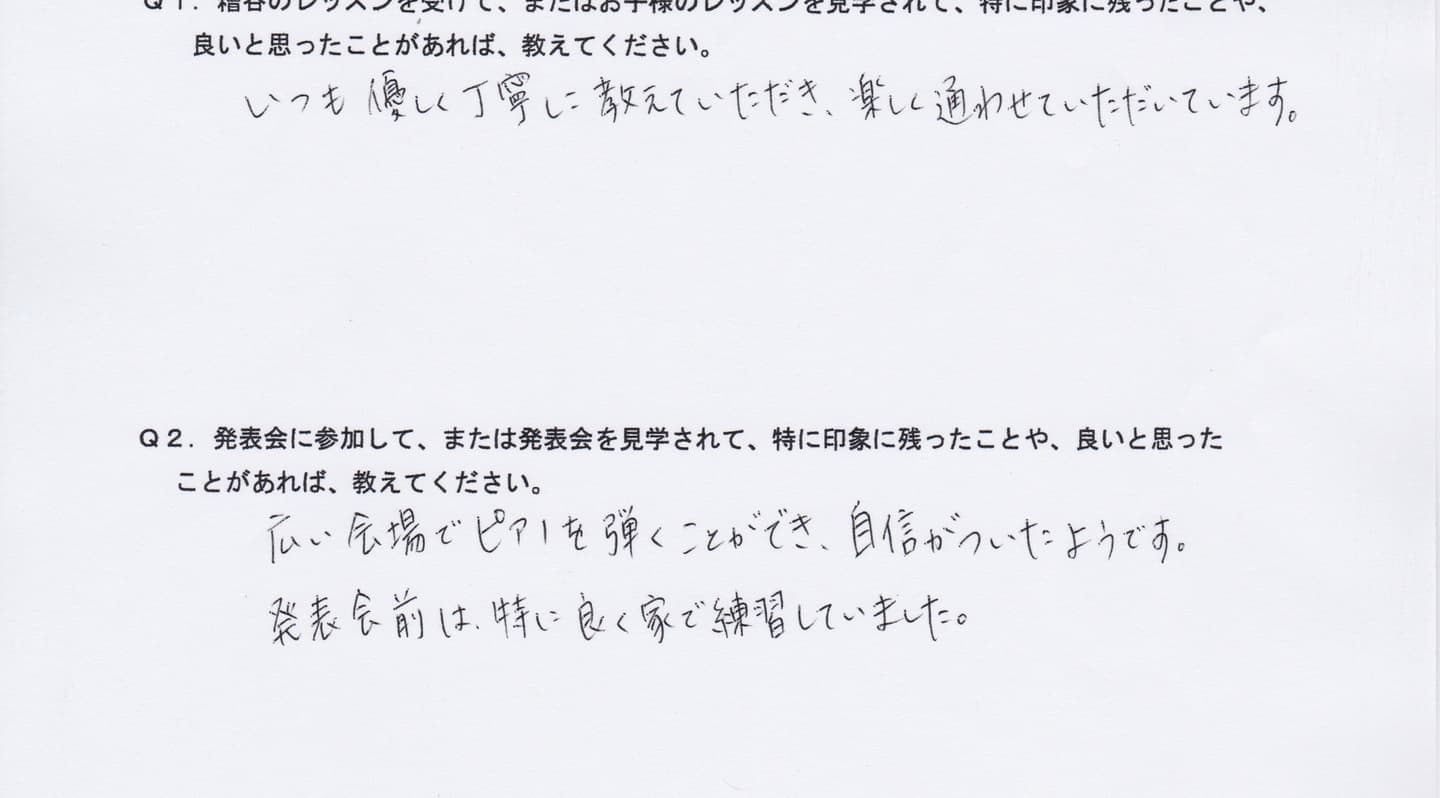 Q1．糟谷のレッスンを受けて、またはお子様のレッスンを見学されて、特に印象に残ったことや、
良いと思ったことがあれば、教えてください。
いつも優しく丁寧に教えていただき、楽しく通わせていただいています。
Q2．発表会に参加して、または発表会を見学されて、特に印象に残ったことや、良いと思った
ことがあれば、教えてください。
広い会場でピアノを弾くことができ、自信がついたようです。
発表会前は、特に良く家で練習していました。